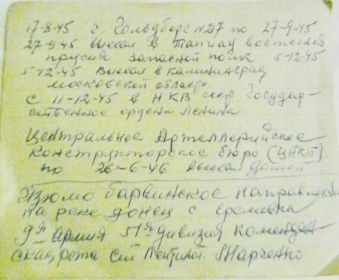 17-8-45 г. Гольдберг №217 по 27-9-45
27-9-45 выехал в Тапиау восточной
прусия запасной полк 5-12-45
5-12-45 Выехал в Калининград
московской области
с 11-12-45 в НКВ Государ-
ственное ордена Ленина
Центральное Артеллерийское
конструкторское бюро (ЦАКБ)
по 26-6-46 выехал домой
Изюмо барвинское направление
на реке донец с Еремовка
9я Армия 51я дивизия комендан-
ская рота Марченко